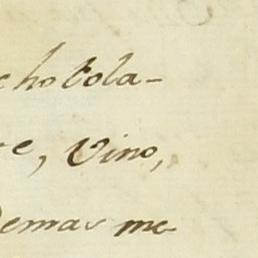 chocola-
e, Vino,
demas me